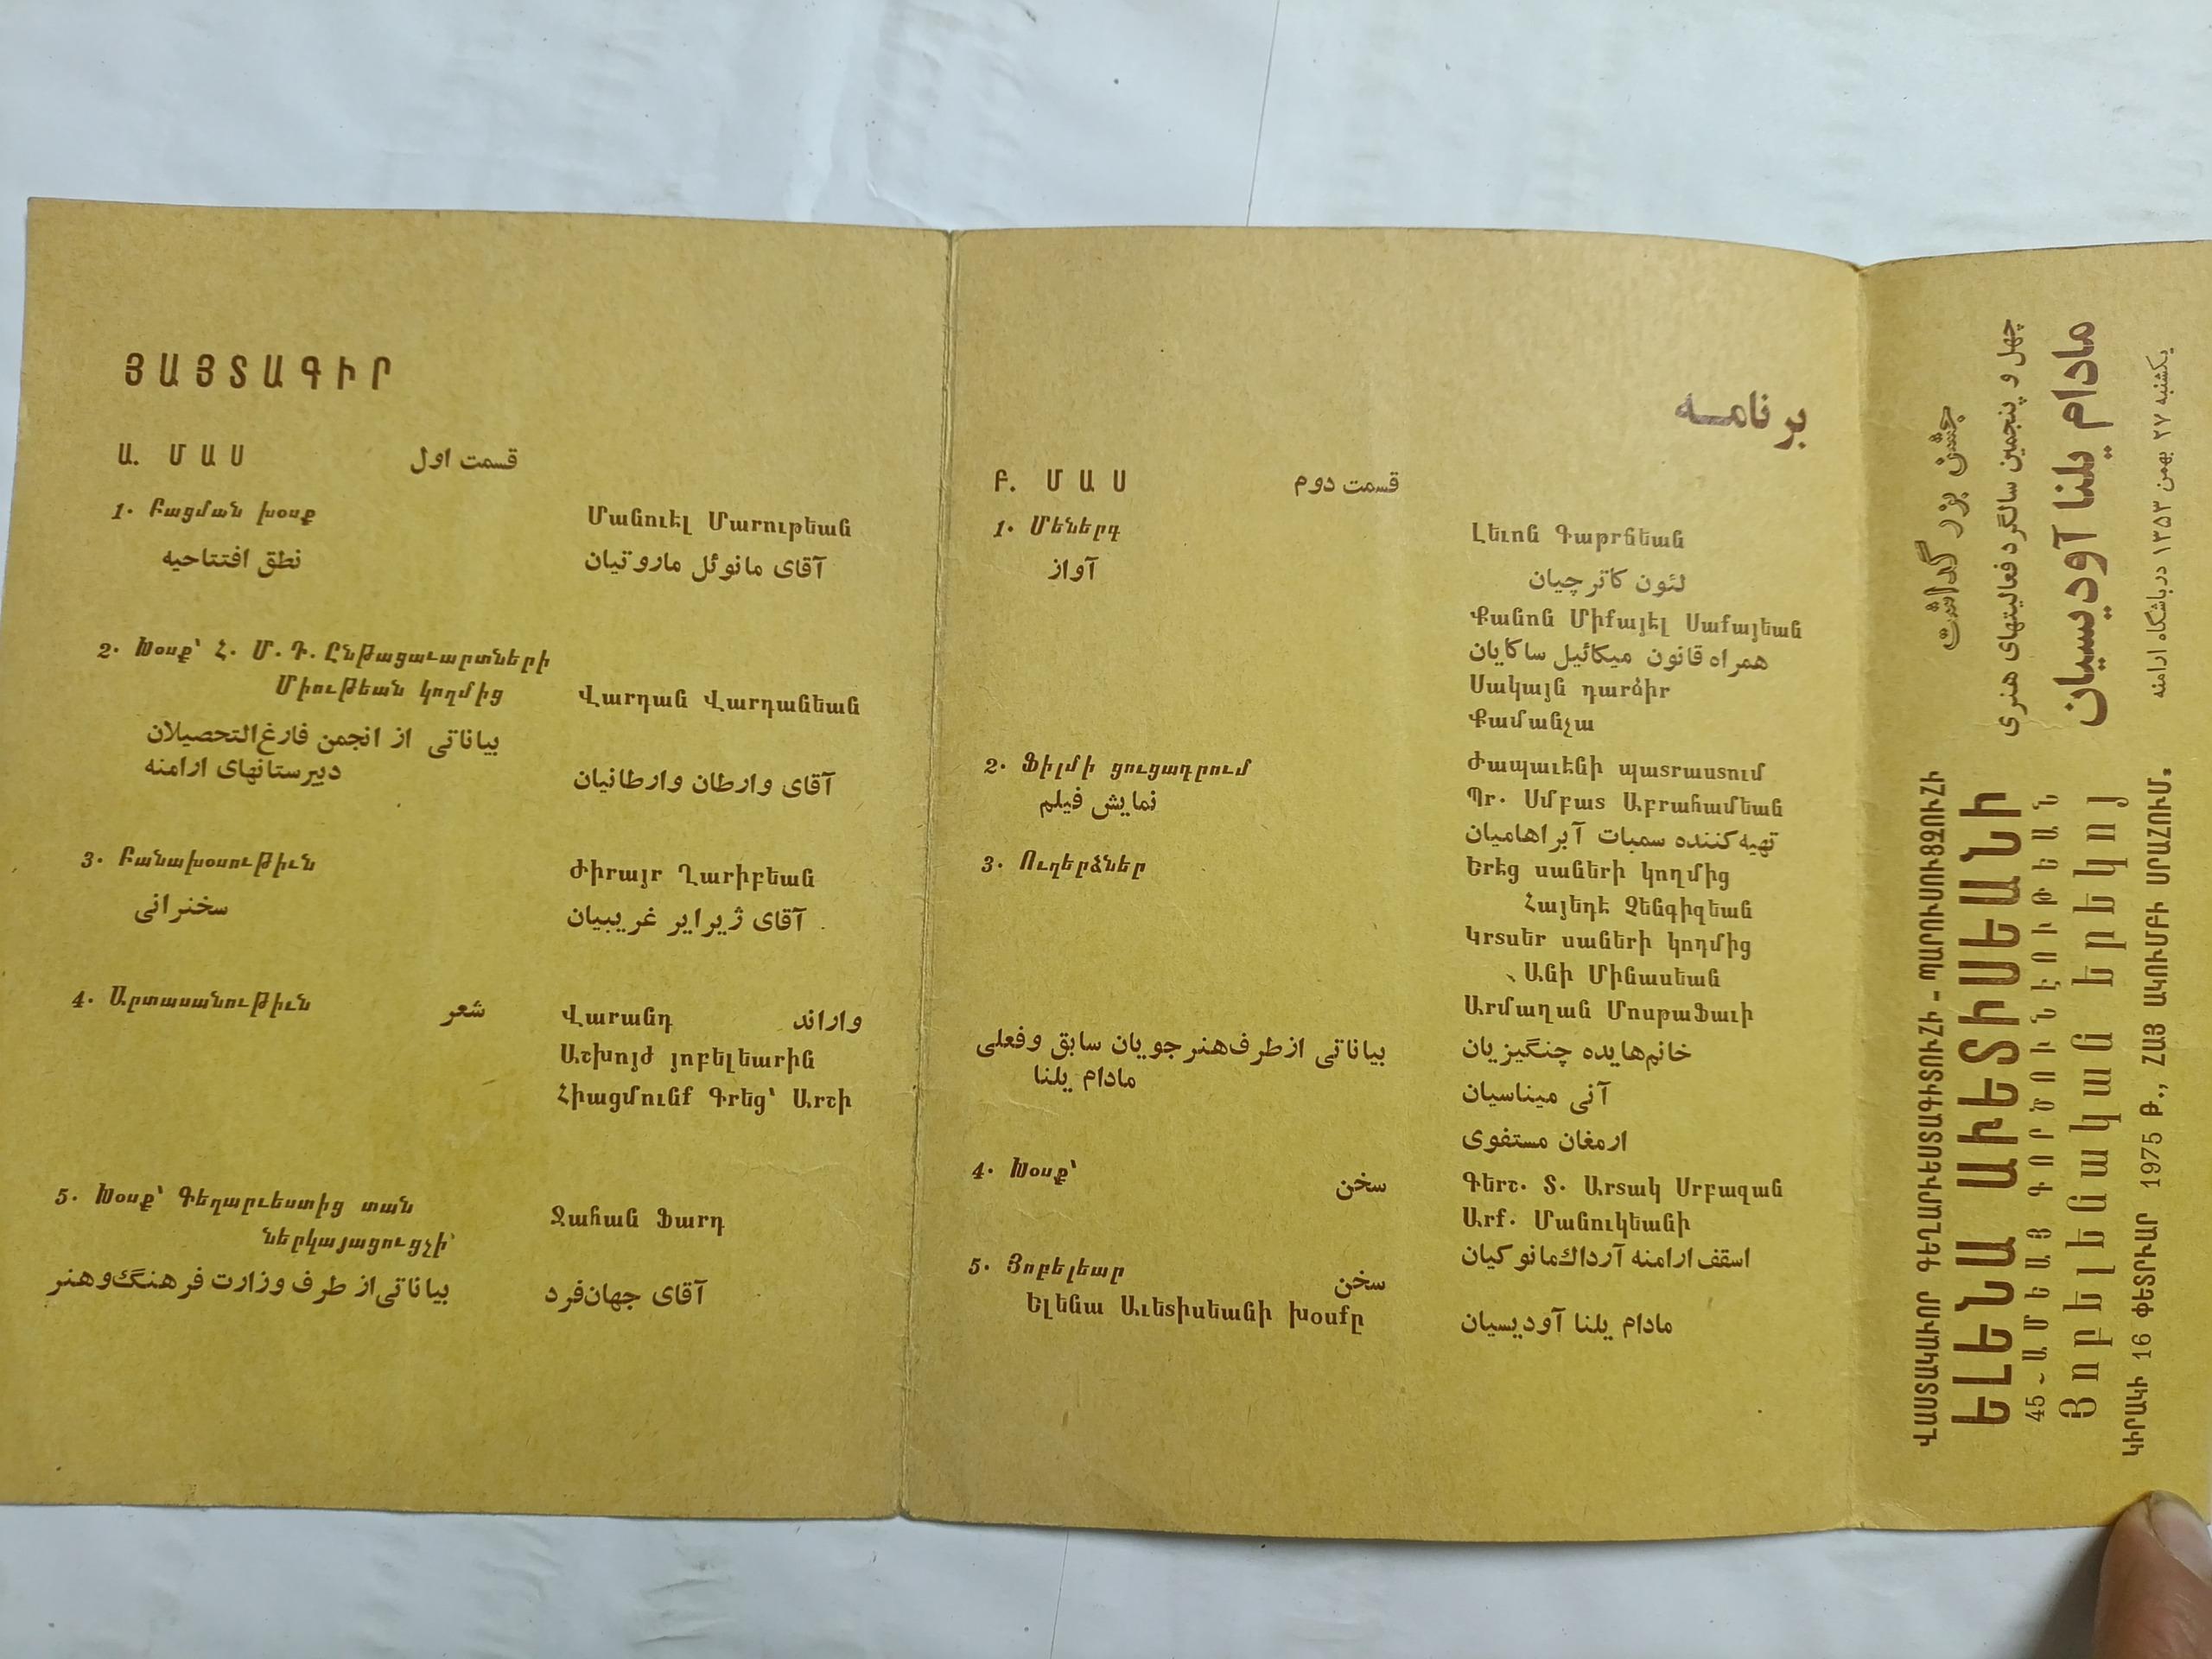 ՅԱՅՏԱԳԻՐ
Ա. ՄԱՍ قسمت اول
1. Բացման խօսք Մանուել Մարութեան
نطق افتتاحیه آقای مانوئل ماروتیان
2. Խօսք՝ Հ. Մ. Դ. Ընթացաւարտների
Միութեան կողմից Վարդան Վարդանեան
بیاناتی از انجمن فارغ‌التحصیلان
دبیرستانهای ارامنه آقای وارطان وارطانیان
3. Բանախօսութիւն Ժիրայր Ղարիբեան
سخنرانی آقای ژیرایر غریبیان
4. Արտասանութիւն شعر Վարանդ واراند
Աշխոյժ յոբելեարին
Հիացմունք Գրեց՝ Արշի
5. Խօսք՝ Գեղարւեստից տան
ներկայացուցչի՝ Ջահան Ֆարդ
بیاناتی از طرف وزارت فرهنگ و هنر آقای جهان‌فرد
برنامه
Բ. ՄԱՍ قسمت دوم
1. Մեներգ Լեւոն Գաթրճեան
آواز لئون کاترچیان
Քանոն Միքայէլ Սաքայեան
همراه قانون میکائیل ساکایان
Սակայն դարձիր
Քամանչա
2. Ֆիլմի ցուցադրում Ժապաւէնի պատրաստում
نمایش فیلم Պր. Սմբատ Աբրահամեան
تهیه‌کننده سمبات آبراهامیان
3. Ուղերձներ Երէց սաների կողմից
Հայեդէ Չենգիզեան
Կրտսեր սաների կողմից
Անի Մինասեան
Արմաղան Մոսթաֆաւի
بیاناتی از طرف هنرجویان سابق و فعلی خانم هایده چنگیزیان
مادام یلنا آنی میناسیان
ارمغان مستفوی
4. Խօսք՝ سخن Գերշ. Տ. Արտակ Սրբազան
Արք. Մանուկեանի
اسقف ارامنه آرداك مانوکیان
5. Յոբելեար سخن
Ելենա Աւետիսեանի խօսքը مادام یلنا آودیسیان
جشن بزرگداشت
چهل و پنجمین سالگرد فعالیتهای هنری
مادام یلنا آودیسیان
یکشنبه ۲۷ بهمن ۱۳۵۳ درباشگاه ارامنه
ՎԱՍՏԱԿԱՒՈՐ ԳԵՂԱՐՒԵՍՏԱԳԻՏՈՒՀԻ - ՊԱՐՈՒՍՈՒՑՉՈՒՀԻ
ԵԼԵՆԱ ԱՒԵՏԻՍԵԱՆԻ
45-ԱՄԵԱՅ ԳՈՐԾՈՒՆԷՈՒԹԵԱՆ
Յոբելենական երեկոյ
ԿԻՐԱԿԻ 16 ՓԵՏՐԻԱՐ 1975 Թ., ՀԱՅ ԱԿՈՒՄԲԻ ՍՐԱՀՈՒՄ.